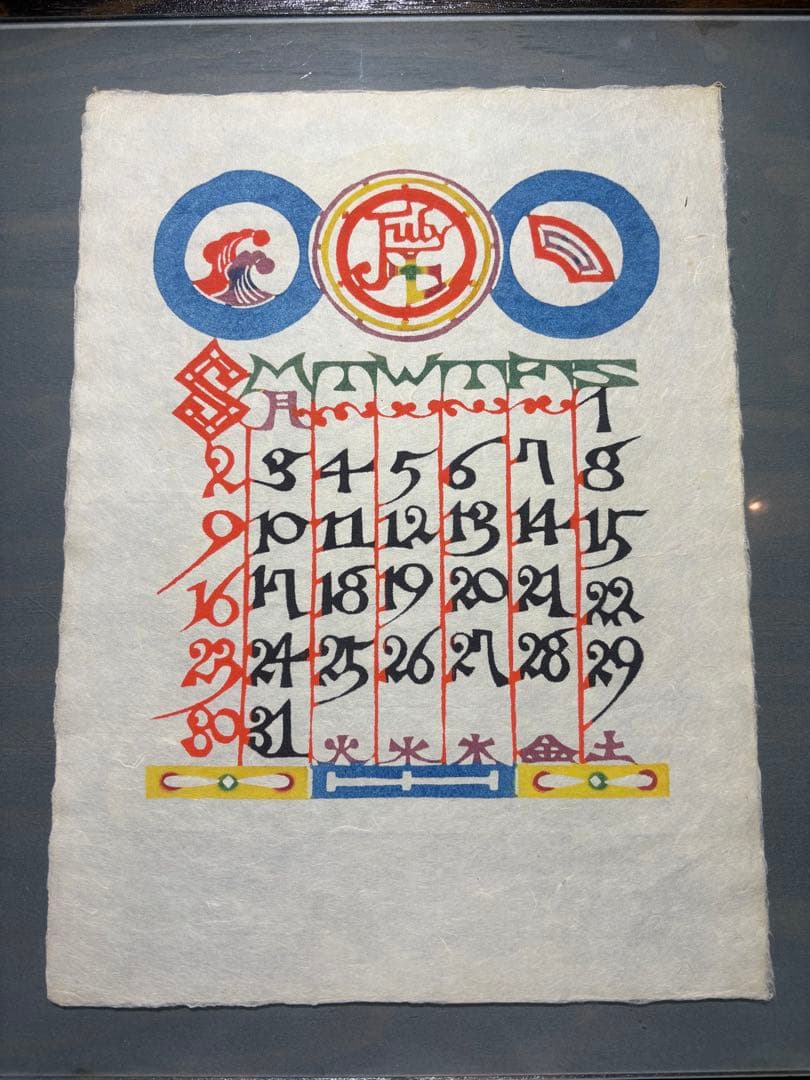 July
七
S M T W T F S
月 1
2 3 4 5 6 7 8
9 10 11 12 13 14 15
16 17 18 19 20 21 22
23 24 25 26 27 28 29
30 31 火 水 木 金 土